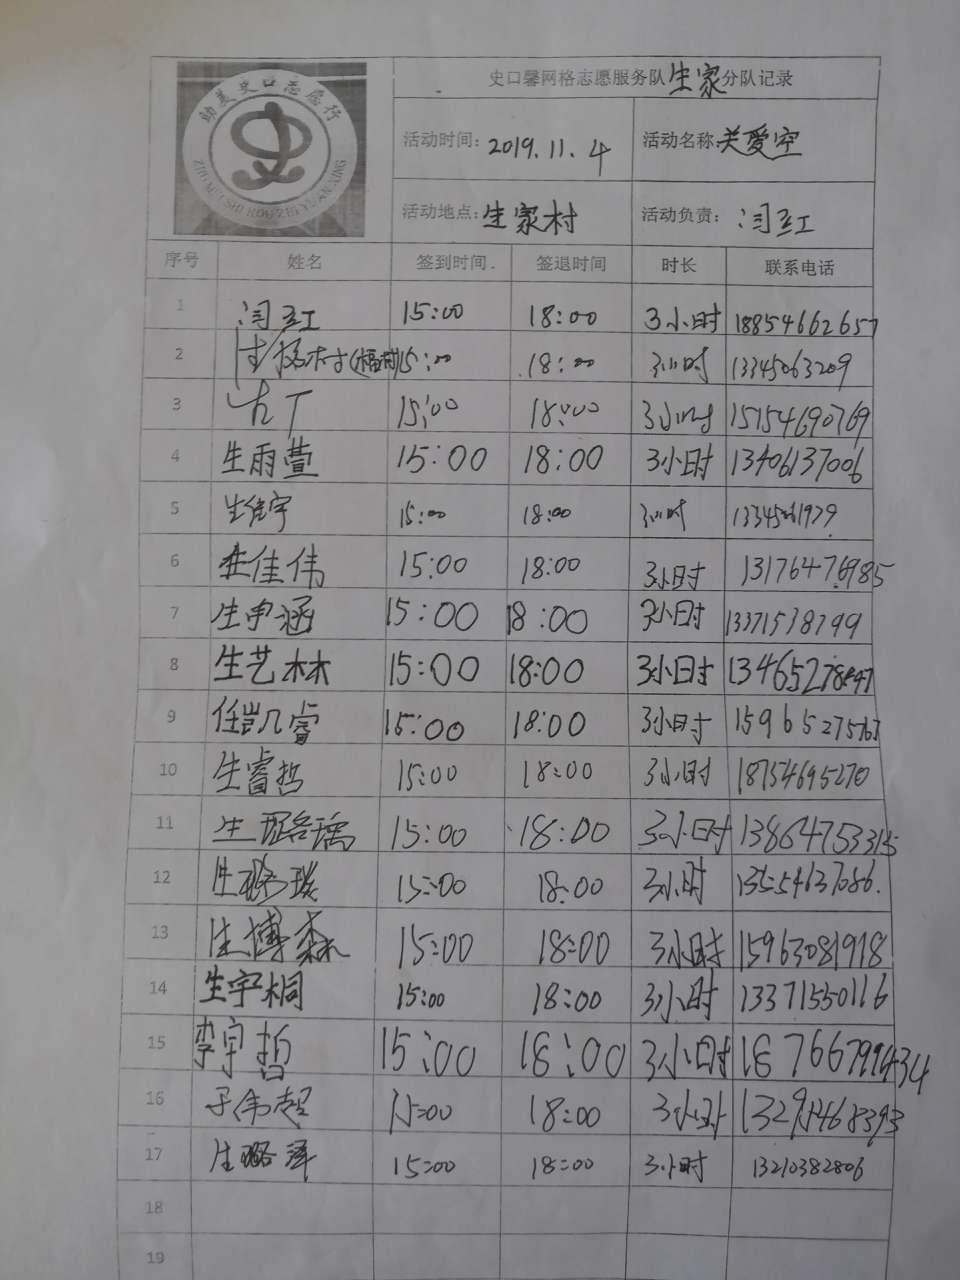 助美史口志愿行
ZHU MEI SHI KOU ZHI YUAN XING
史口馨网格志愿服务队生家分队记录
活动时间: 2019.11.4 活动名称:关爱空
活动地点: 生家村 活动负责: 闫红
序号 姓名 签到时间 签退时间 时长 联系电话
1 闫红 15:00 18:00 3小时 18854662657
2 15:00 18:00 3小时 13345063209
3 15:00 18:00 3小时 15154690769
4 生雨萱 15:00 18:00 3小时 13406137006
5 生佳宇 15:00 18:00 3小时
6 生佳伟 15:00 18:00 3小时 13176476985
7 生申涵 15:00 18:00 3小时 13371538799
8 生艺林 15:00 18:00 3小时
9 任凯睿 15:00 18:00 3小时
10 生睿哲 15:00 18:00 3小时 18754695270
11 15:00 18:00 3小时
12 15:00 18:00 3小时 13554637086
13 生博森 15:00 18:00 3小时 15963081918
14 生宇桐 15:00 18:00 3小时 13371550116
15 李宇哲 15:00 18:00 3小时
16 15:00 18:00 3小时
17 生璐泽 15:00 18:00 3小时 13210382806
18
19